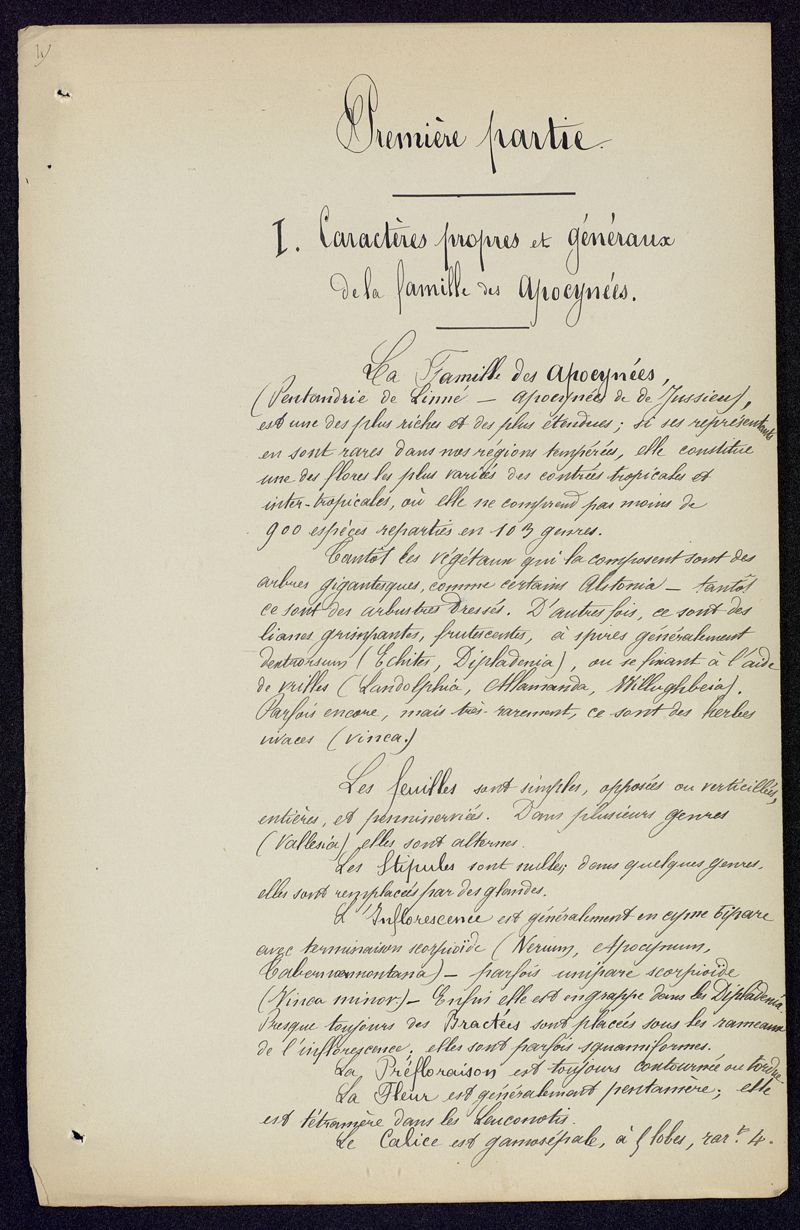 Première partie.
I. Caractères propres et généraux
de la famille des Apocynées.
La Famille des Apocynées,
(Pentandrie de Linné — Apocynées de de Jussieu),
est une des plus riches et des plus étendues ; si ses représentants
en sont rares dans nos régions tempérées, elle constitue
une des flores les plus variées des contrées tropicales et
inter-tropicales, où elle ne comprend pas moins de
900 espèces reparties en 103 genres.
Tantôt les végétaux qui la composent sont des
arbres gigantesques, comme certains Alstonia — tantôt
ce sont des arbustres dressés. D'autres fois, ce sont des
lianes grimpantes, frutescentes, à spires généralement
dextrorsum (Echites, Dipladenia), ou se fixant à l'aide
de vrilles (Landolphia, Allamanda, Willughbeia).
Parfois encore, mais très-rarement, ce sont des herbes
vivaces (Vinca.)
Les feuilles sont simples, opposées ou verticillées,
entières, et penninerviées. Dans plusieurs genres
(Vallesia) elles sont alternes.
Les Stipules sont nulles; dans quelques genres,
elles sont remplacées par des glandes.
L'Inflorescence est généralement en cyme bipare
avec terminaison scorpioïde (Nerium, Apocynum,
Tabernaemontana) — parfois unipare scorpioïde
(Vinca minor) — Enfin elle est en grappe dans les Dipladenia.
Presque toujours des Bractées sont placées sous les rameaux
de l'inflorescence ; elles sont parfois squamiformes.
La Préfloraison est toujours contournée ou tordue.
La Fleur est généralement pentamère ; elle
est tétramère dans les Leuconotis.
Le Calice est gamosépale, à 5 lobes, rar.t 4.